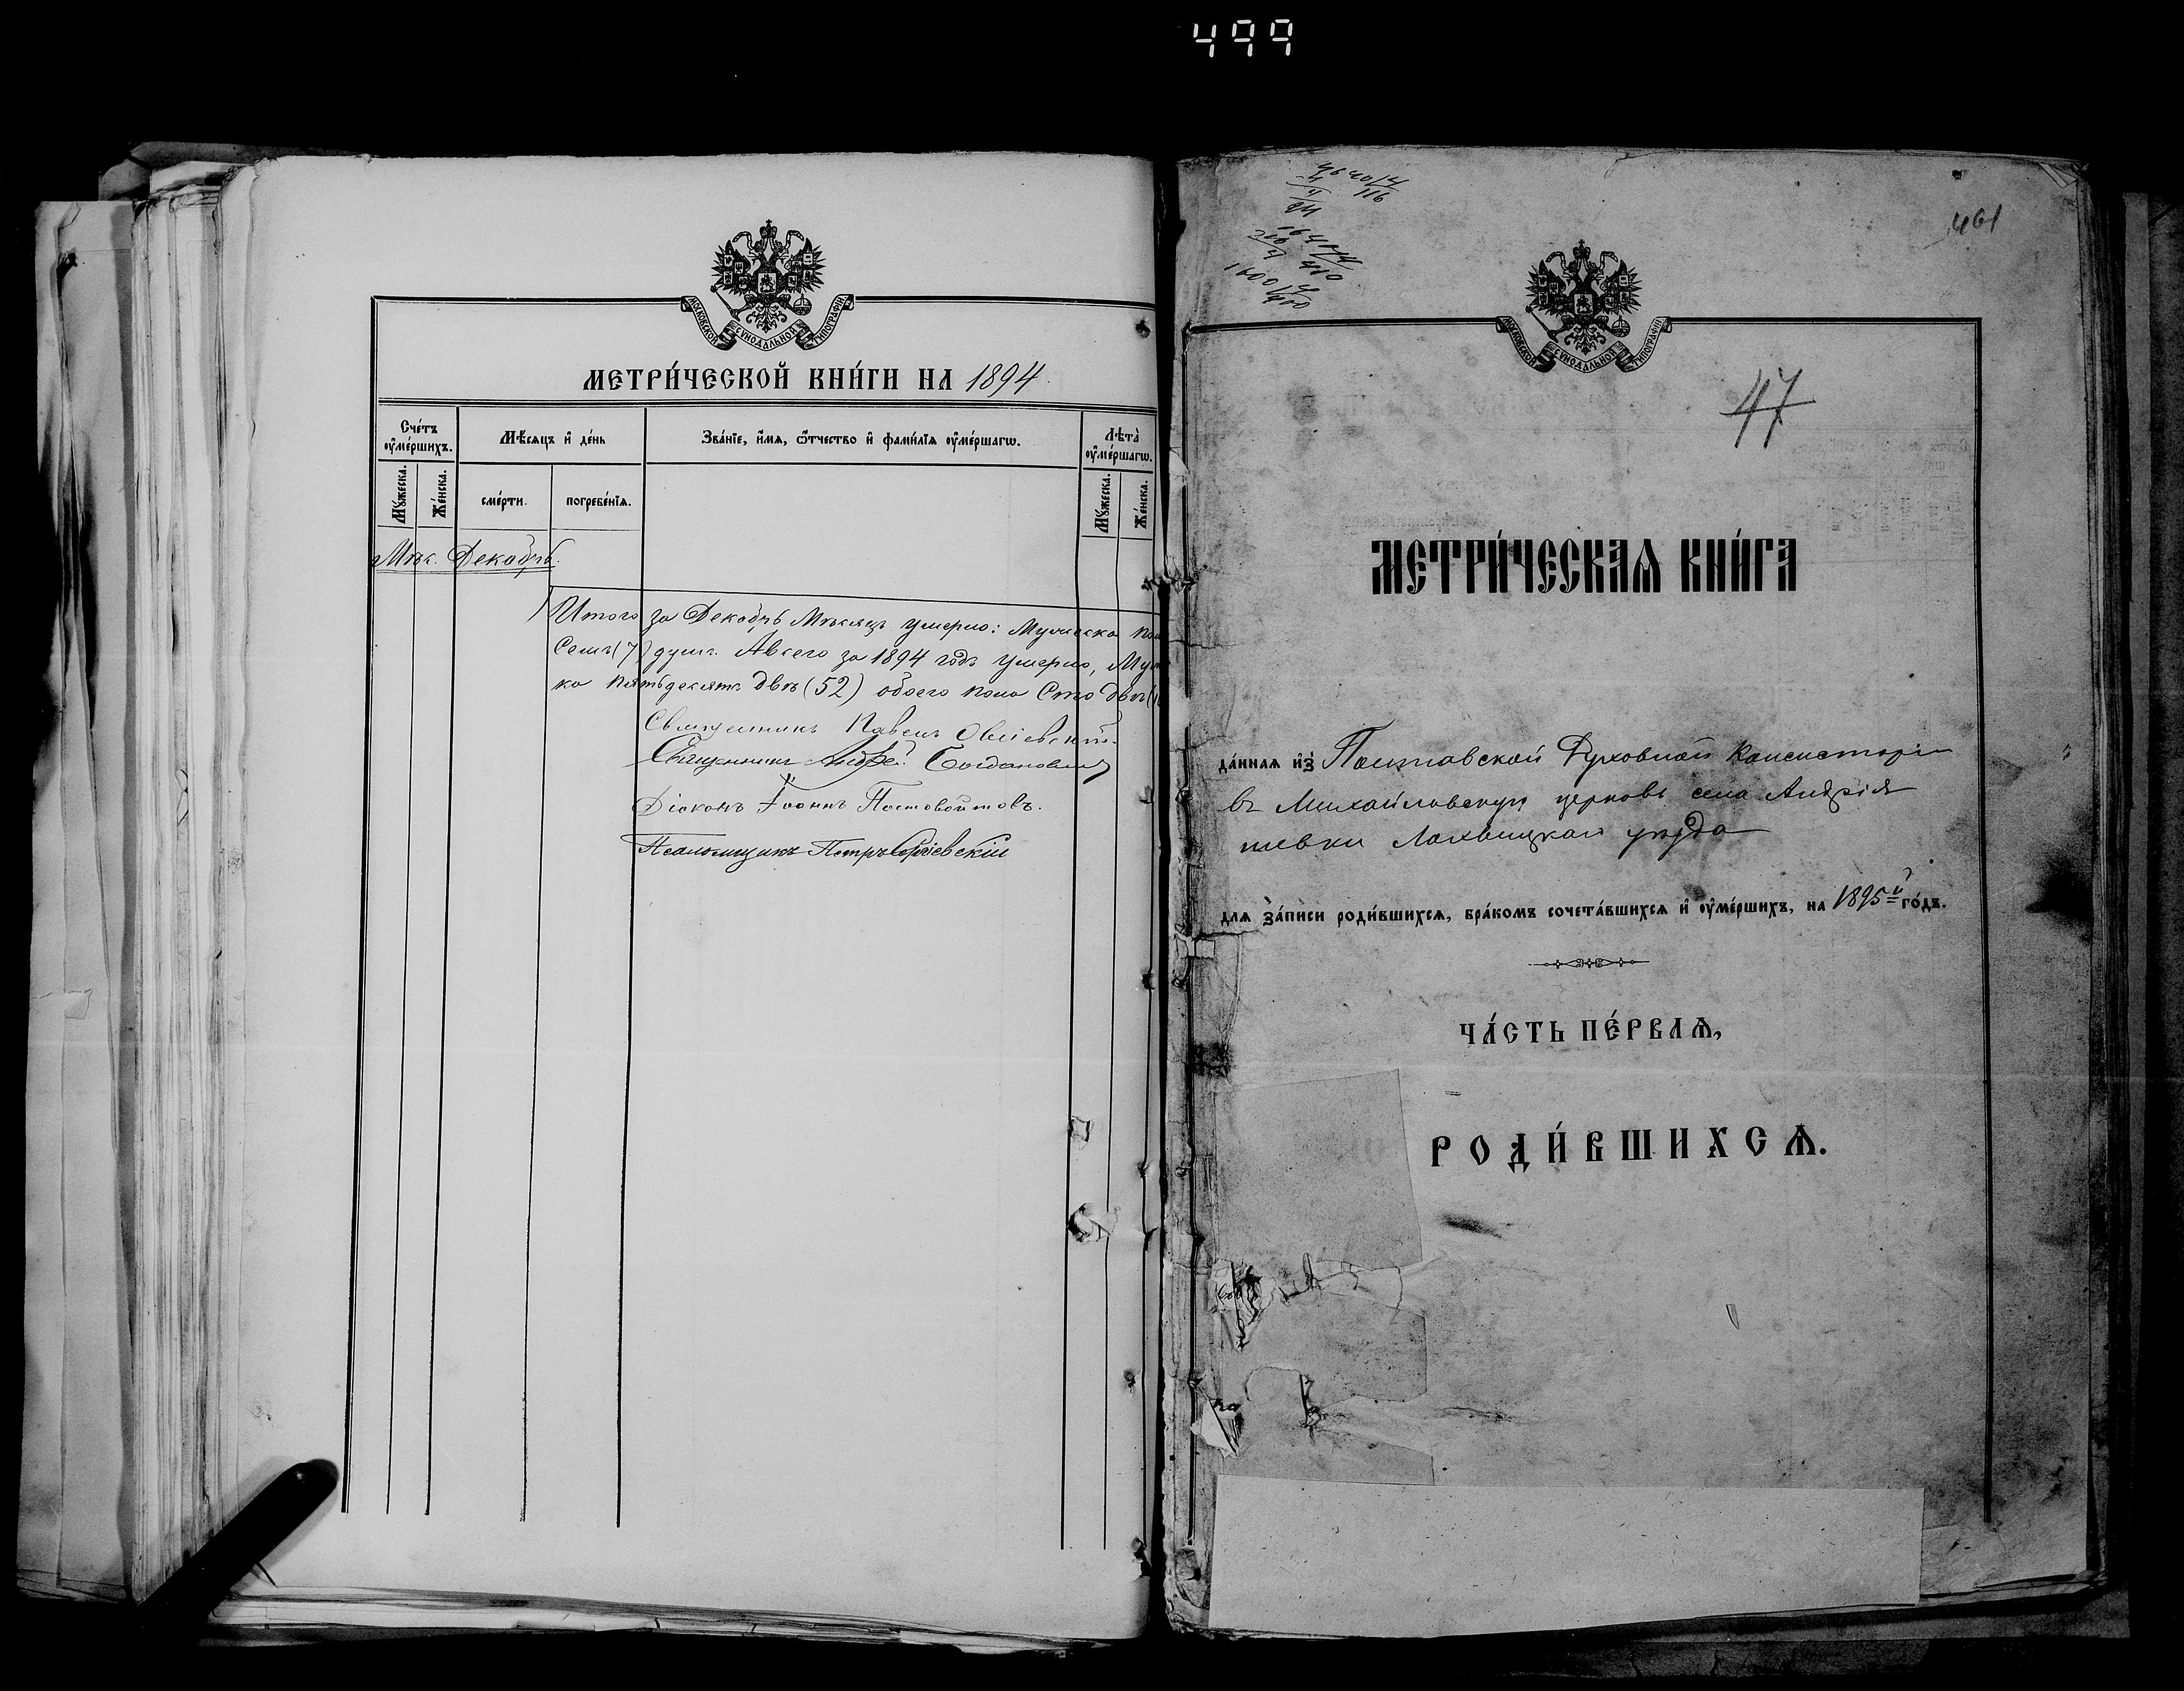 499
МОСКОВСКОЙ СѴНОДАЛЬНОЙ ТИПОГРАФІИ
МЕТРИ́ЧЕСКОЙ КНИ́ГИ НА 1894
Сче́тъ оу҆ме́ршихъ.
Мѣ́сяцъ и҆ де́нь
Зва́нїе, и҆́мѧ, ѻ҆́тчество и҆ фами́лїѧ оу҆ме́ршагѡ.
Лѣта̀ оу҆ме́ршагѡ.
Мꙋ́жеска.
Же́нска.
сме́рти.
погребе́нїѧ.
Мꙋ́жеска.
Же́нска.
Мѣс. Декабрь.
Итого за Декабрь Мѣсяцъ умерло: Мужеска
Семь (7) душъ. Авсего за 1894 годъ умерло,
ка пятьдесятъ двѣ (52) обоего пола Сто двѣ
Священникъ Павелъ
Священникъ Андрей Богдановичъ
Діаконъ Іоаннъ Постовойтовъ.
Псаломщикъ Петръ
461
МОСКОВСКОЙ СѴНОДАЛЬНОЙ ТИПОГРАФІИ
47
МЕТРИ́ЧЕСКАѦ КНИ́ГА
да́ннаѧ и҆з̾ Полтавской Духовной Консисторіи
въ Михайловскую церковь села Андрія
шевки Лохвицкаго уѣзда
для за́писи роди́вшихсѧ, бра́комъ сочета́вшихсѧ и҆ оу҆ме́ршихъ, на 1895й го́дъ.
ЧА́СТЬ ПЕ́РВАѦ,
РОДИ́ВШИХСѦ.